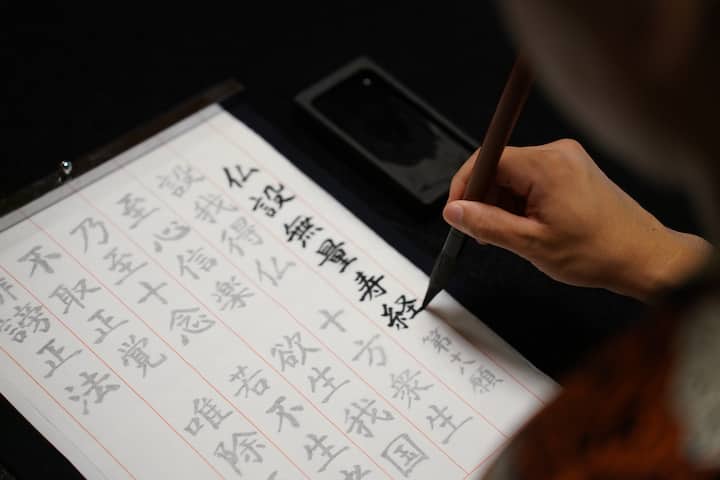 仏設無量寿経 第十八願
設我得仏 十方衆生
至心信楽 欲生我国
乃至十念 若不生
不取正覚 唯除
謗正法